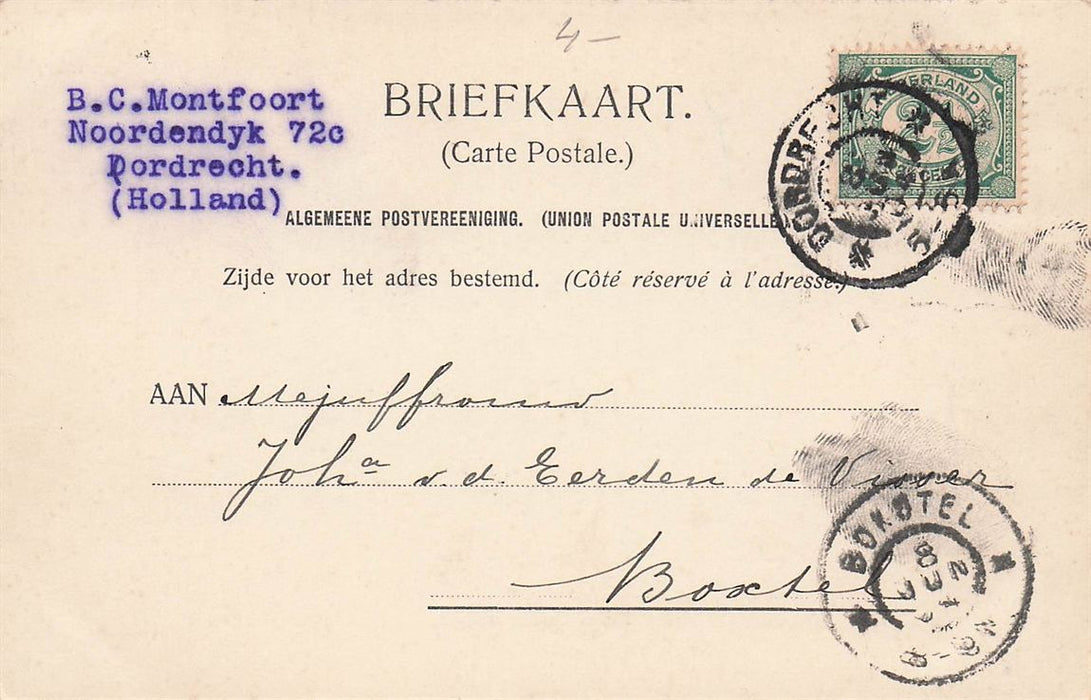 4-
B.C.Montfoort
Noordendyk 72c
Dordrecht.
(Holland)
BRIEFKAART.
(Carte Postale.)
ALGEMEENE POSTVEREENIGING. (UNION POSTALE UNIVERSELLE
Zijde voor het adres bestemd. (Côté réservé à l'adresse.)
NEDERLAND
2½
CENT
DORDRECHT
AAN Mejuffrouw
Joha v.d. Eerden de Visser
Boxtel
BOKSTEL